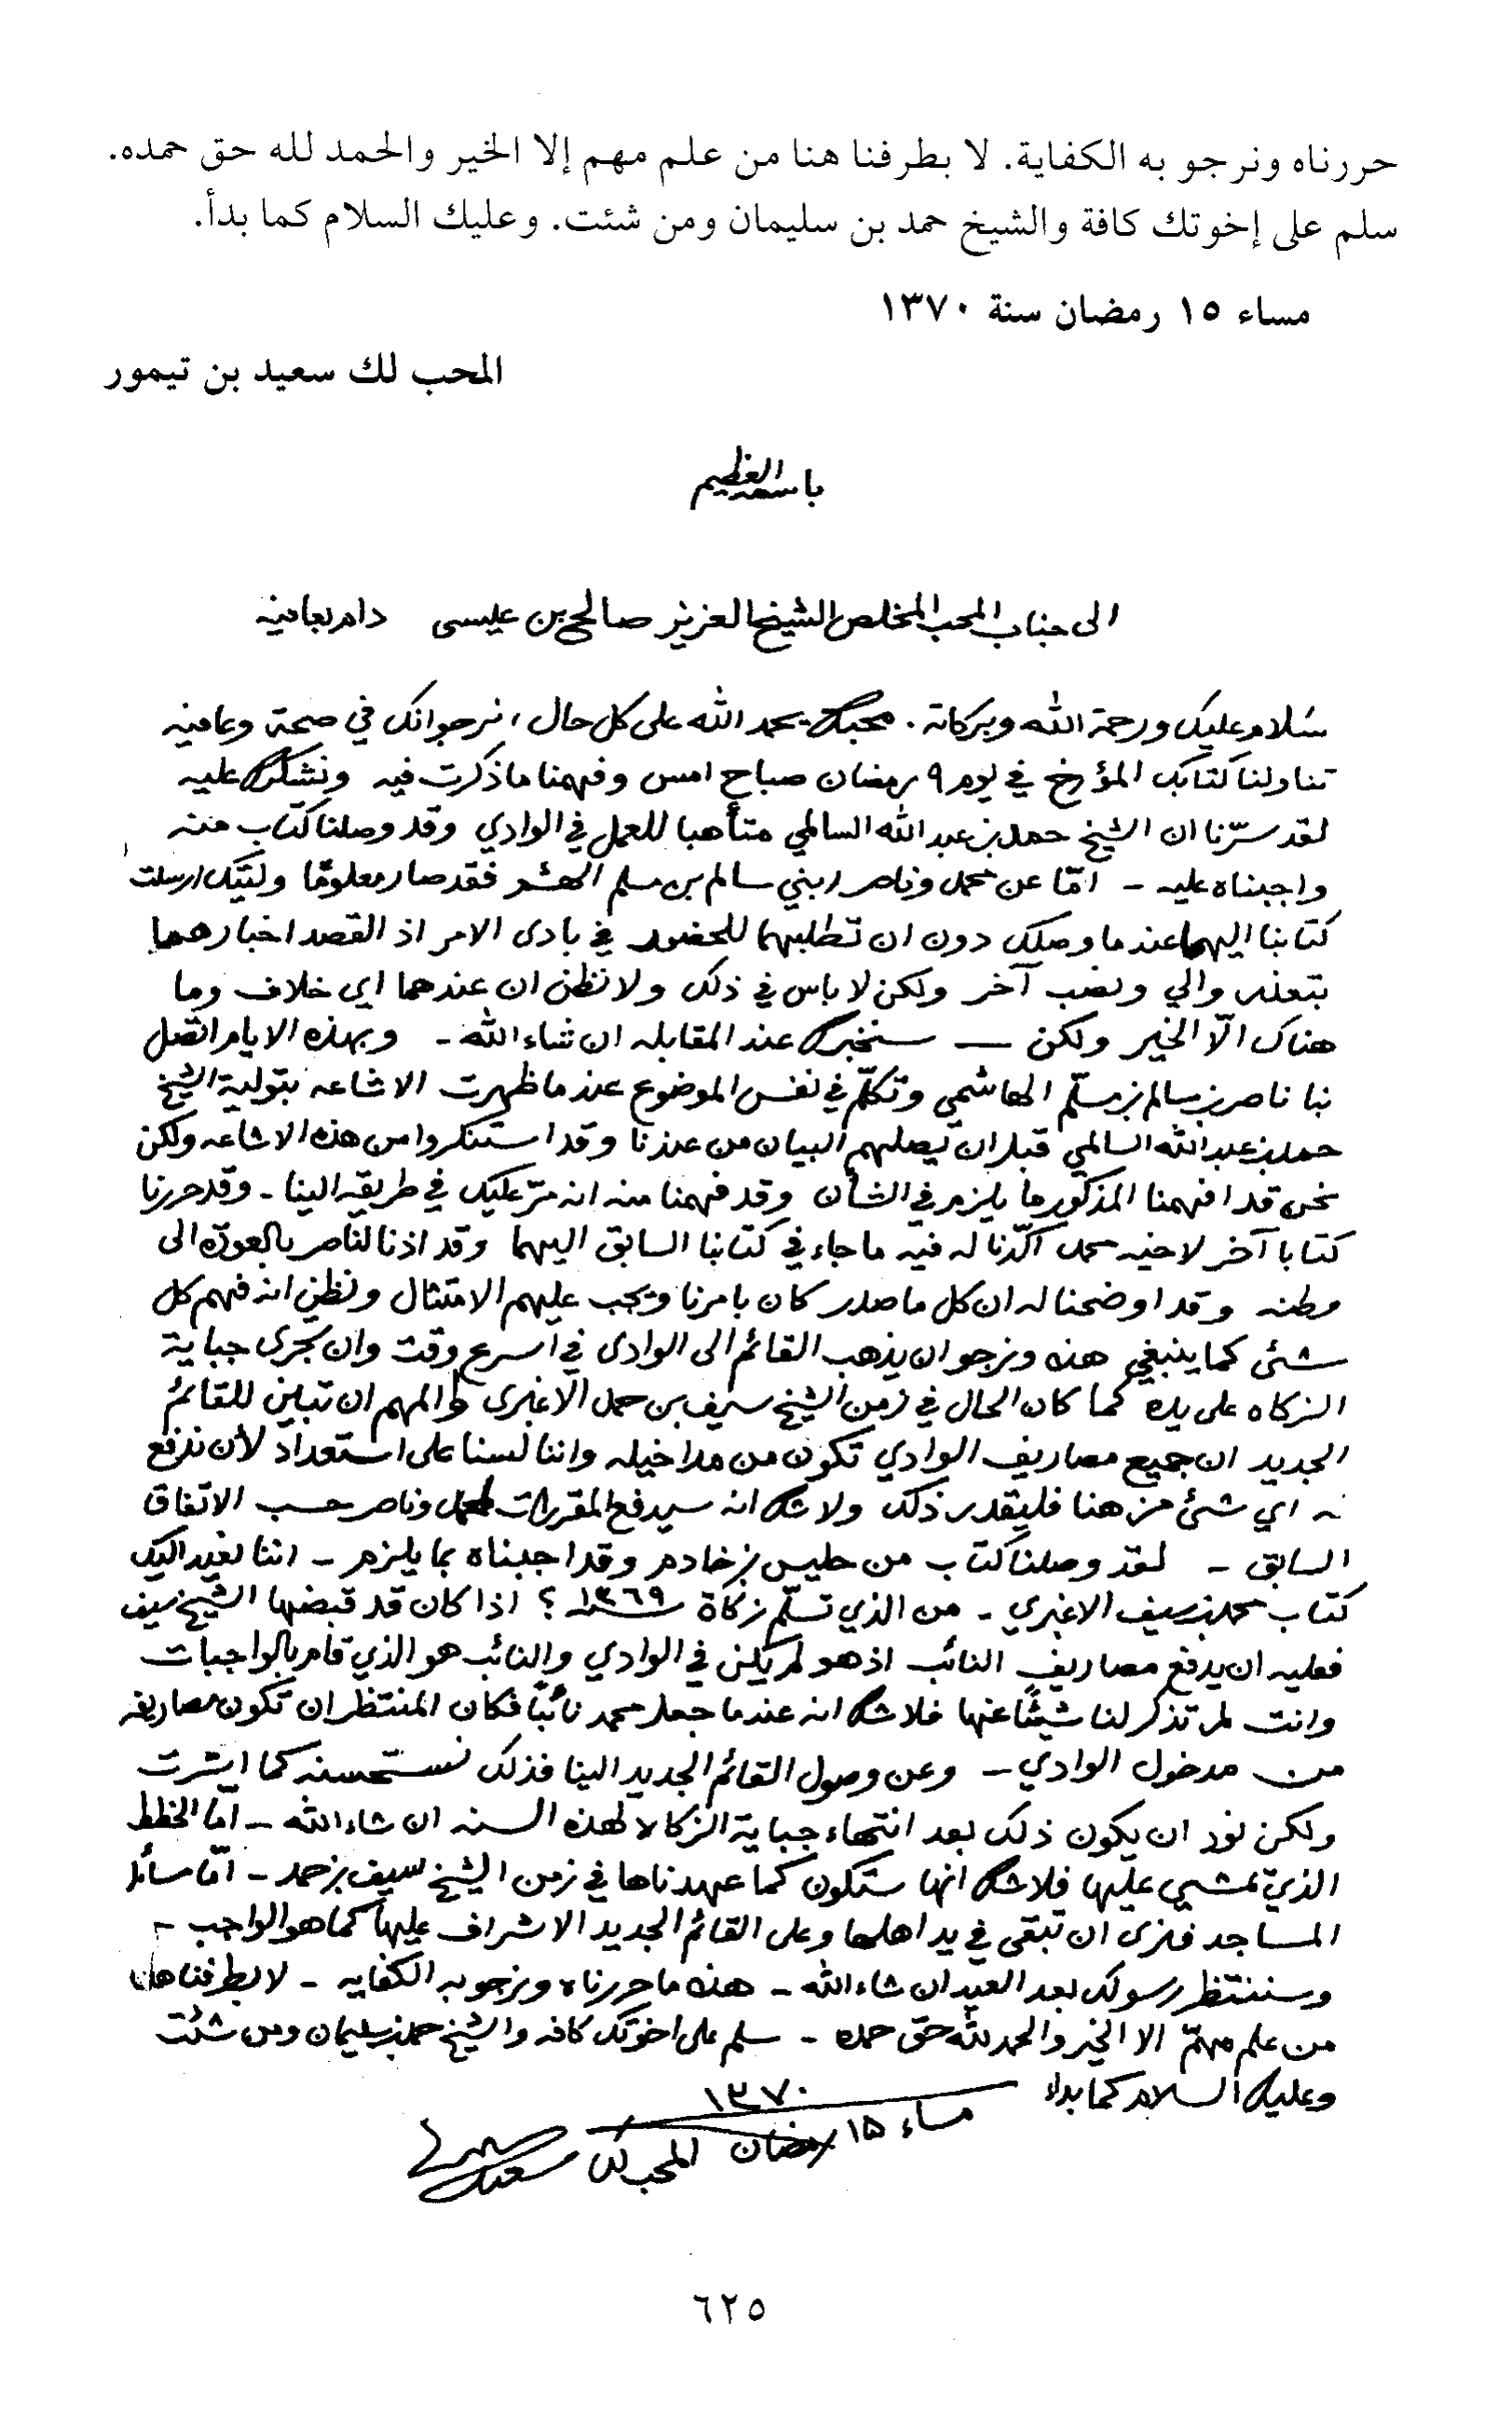 حررناه ونرجو به الكفاية. لا بطرفنا هنا من علم مهم إلا الخير والحمد لله حق حمده.
سلم على إخوتك كافة والشيخ حمد بن سليمان ومن شئت. وعليك السلام كما بدأ.
مساء ١٥ رمضان سنة ١٣٧٠
المحب لك سعيد بن تيمور
باسمه العظيم
الى جناب المحب المخلص الشيخ العزيز صالح بن عيسى دام بعافيه
سلام عليك ورحمة الله وبركاته . محبك بحمد الله على كل حال ، نرجو انك في صحة وعافيه
تناولنا كتابك المؤرخ في يوم ٩ رمضان صباح امس وفهمنا ما ذكرت فيه ونشكرك عليه
لقد سرّنا ان الشيخ حمد بن عبد الله السالمي متأهبا للعمل في الوادي وقد وصلنا كتاب منه
واجبناه عليه - امّا عن محمد وناصر ابني سالم بن مسلم الهشم فقد صار معلومًا وليتك ارسلت
كتابنا اليهما عندما وصلك دون ان تطلبهما للحضور في بادى الامر اذ القصد اخبارهما
بتعنه والي ونصب آخر ولكن لا باس في ذلك ولا نظن ان عندهما اي خلاف وما
هناك الّا الخير ولكن — سنخبرك عند المقابله ان شاء الله - وبهذه الايام اتصل
بنا ناصر بن سالم بن مسلّم الهاشمي وتكلّم في نفس الموضوع عندما ظهرت الاشاعه بتولية الشيخ
حمد بن عبد الله السالمي قبل ان يصلهم البيان من عندنا وقد استنكروا من هذه الاشاعه ولكن
نحن قد افهمنا المذكور ما يلزم في الشأن وقد فهمنا منه انه مرّ عليك في طريقه الينا - وقد حررنا
كتابا آخر لاخيه محمد اكّدنا له فيه ما جاء في كتابنا السابق اليهما وقد اذنا لناصر بالعوده الى
وطنه وقد اوضحنا له ان كل ما صدر كان بامرنا ويجب عليهم الامتثال ونظن انه فهم كل
شئ كما ينبغي هذه ونرجو ان يذهب القائم الى الوادى في أسرع وقت وان يجرى جباية
الزكاه على يده كما كان الحال في زمن الشيخ سيف بن حمد الاغبرى والمهم ان تبين للقائم
الجديد ان جميع مصاريف الوادي تكون من مداخيله واننا لسنا على استعداد لأن ندفع
له اي شئ من هنا فليقدر ذلك ولا شك انه سيدفع المقررات لمحمد وناصر حسب الاتفاق
السابق - لقد وصلنا كتاب من حليس بن خادم وقد اجبناه بما يلزم - اننا نعيد اليك
كتاب محمد بن سيف الاغبري - من الذي تسلّم زكاة سنة ١٣٦٩ ؟ اذا كان قد قبضها الشيخ سيف
فعليه ان يدفع مصاريف النائب اذ هو لم يكن في الوادي والنائب هو الذي قام بالواجبات
وانت لم تذكر لنا شيئًا عنها فلا شك انه عندما جعل محمد نائبًا فكان المنتظر ان تكون مصاريفه
من مدخول الوادي - وعن وصول القائم الجديد الينا فذلك نستحسنه كما اشرت
ولكن نود ان يكون ذلك بعد انتهاء جباية الزكاة لهذه السنه ان شاء الله - امّا الخطط
الذي يمشي عليها فلا شك انها ستكون كما عهدناها في زمن الشيخ سيف بن حمد - امّا مسائل
المساجد فنرى ان تبقى في يد اهلها وعلى القائم الجديد الاشراف عليها كما هو الواجب -
وسننتظر رسولك بعد العيد ان شاء الله - هذه ما حررناه ونرجو به الكفايه - لا بطرفنا هنا
من علم مهمّ الا الخير والحمد لله حق حمده - سلم على اخوتك كافه والشيخ حمد بن سليمان ومن شئت
وعليك السلام كما بدا
مساء ١٥ رمضان ١٣٧٠
المحب لك سعيد
٦٢٥